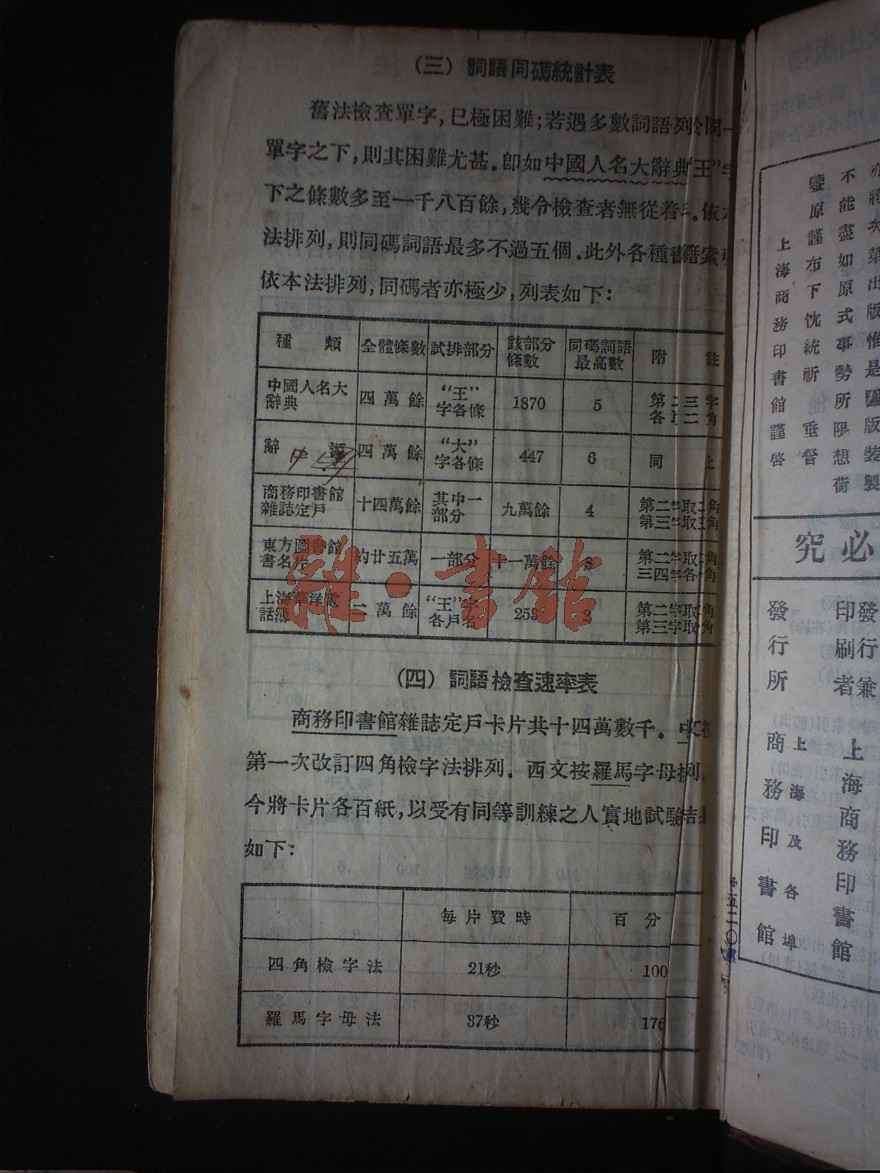 (三) 詞語同碼統計表
舊法檢查單字,已極困難;若遇多數詞語列於同一
單字之下,則其困難尤甚。卽如中國人名大辭典“王”字
下之條數多至一千八百餘,幾令檢查者無從着手。依本
法排列,則同碼詞語最多不過五個。此外各種書籍索引
依本法排列,同碼者亦極少,列表如下:
種類 全體條數 試排部分 該部分條數 同碼詞語最高數 附註
中國人名大辭典 四萬餘 “王”字各條 1870 5 第二三字各取二角
辭 四萬餘 “大”字各條 447 6 同上
商務印書館雜誌定戶 十四萬餘 其中一部分 九萬餘 4 第二字取二角 第三字取 角
東方圖書館書名片 約廿五萬 一部分 十一萬餘 第二字取 角 三四字各 角
上海華洋電話 二萬餘 “王”字各戶名 25 2 第二字取 角 第三字取 角
(四) 詞語檢查速率表
商務印書館雜誌定戶卡片共十四萬數千。中文按
第一次改訂四角檢字法排列。西文按羅馬字母排列。
今將卡片各百紙,以受有同等訓練之人實地試驗結果
如下:
每片費時 百分
四角檢字法 21秒 100
羅馬字母法 37秒 176
羅·書館
亦將次第出版惟是圖版裝製
不能盡如原式事勢所限想荷
鑒原謹布下忱統祈 垂督
上海商務印書館謹啓
必究
發行兼印刷者 上海商務印書館
發行所 上海及各埠 商務印書館
五二〇